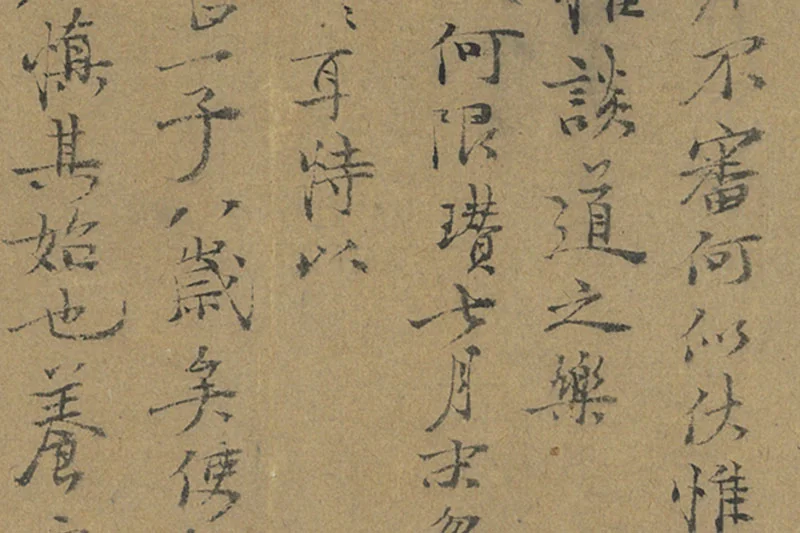 不審何似伏惟
談道之樂
何限瓚七月末
耳特以
一子八歲矣使
慎其始也養